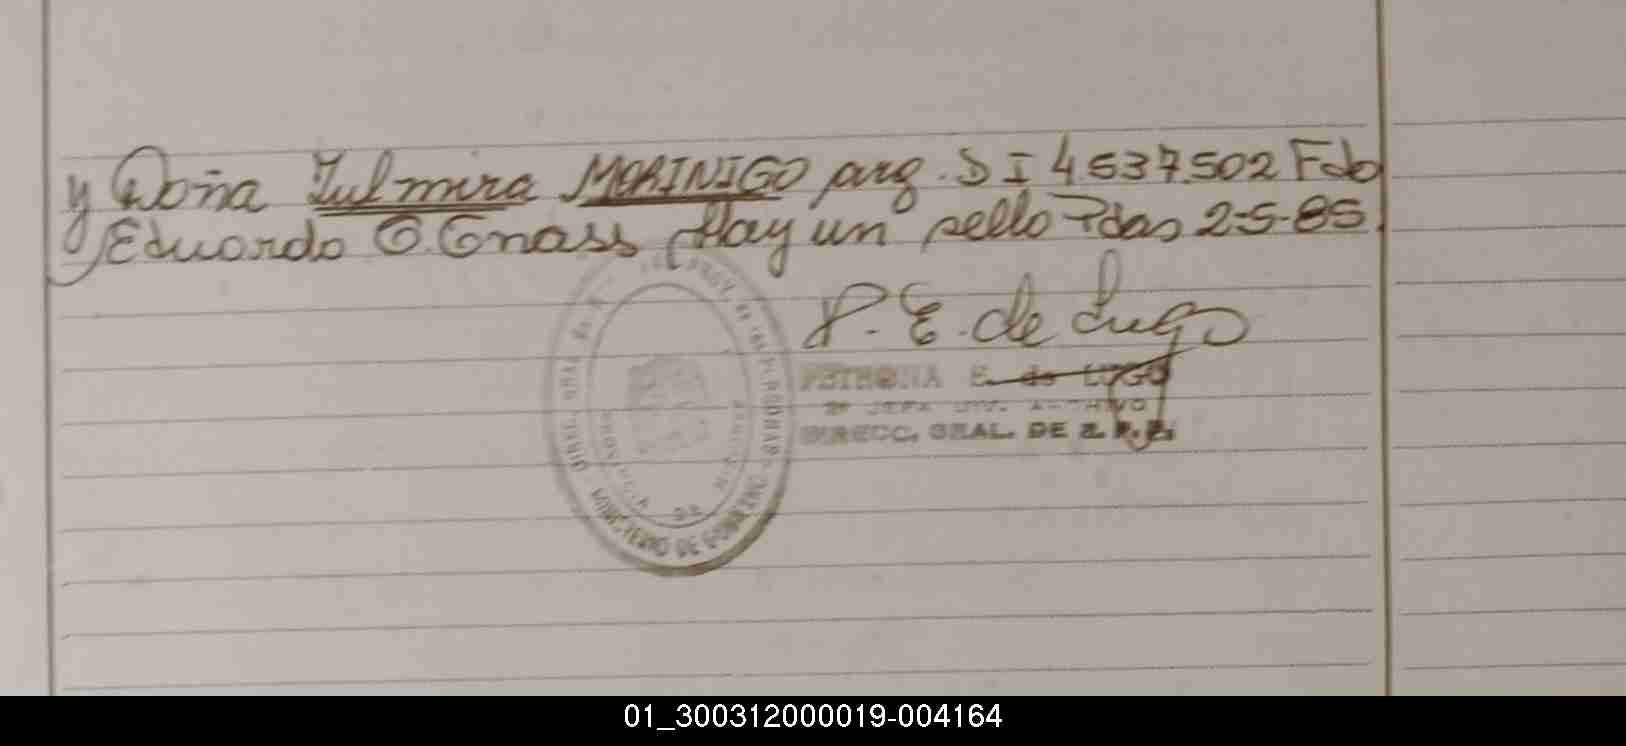 y Doña Zulmira MORINIGO arg. D I 4537.502 Fdo
Eduardo O. Gnass Hay un sello Pdas 2-5-85.
P. E. de Lugo
PETRONA E. de LUGO
2º JEFA DIV. ARCHIVO
DIRECC. GRAL. DE R. P. P.
MINISTERIO DE GOBIERNO
01_300312000019-004164